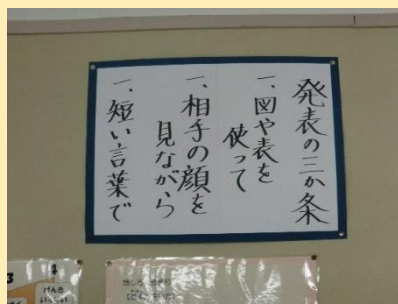 発表の三か条
一、図や表を
使って
一、相手の顔を
見ながら
一、短い言葉で
3
4
げんき